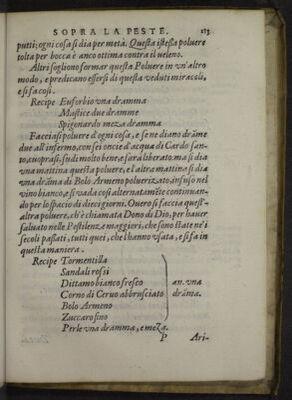 SOPRA LA PESTE. 113
putti: ogni cosa si dia per metà. Questa istessa poluere
tolta per bocca è anco ottima contra il ueleno.
Altri sogliono formar questa Poluere in vn'altro
modo, e predicano essersi di questa veduti miracoli,
e si fa cosi.
Recipe Euforbio vna dramma
Mastice due dramme
Spigonardo meza dramma
Facciasi poluere d'ogni cosa, e se ne diano dräme
due all'infermo, con sei oncie d'acqua di Cardo san-
to, cuoprasi, sudi molto bene, e sarà liberato. ma si dia
vna mattina questa poluere, e l'altra mattina si dia
vna dräma di Bolo Armeno poluerizato, infuso nel
vino bianco, e si vada cosi alternatamëte continuan-
do per lo spacio di dieci giorni. Ouero si faccia quest'-
altra poluere, ch'è chiamata Dono di Dio, per hauer
saluato nelle Pestilenze maggiori, che sono state ne'i
secoli passati, tutti quei, che l'hanno vsata, e si fa in
questa maniera.
Recipe Tormentilla
Sandali rossi
Dittamo bianco fresco an. vna
Corno di Ceruo abbrusciato dräma.
Bolo Armeno
Zuccaro fino
Perle vna dramma, e meza.
P Ari-